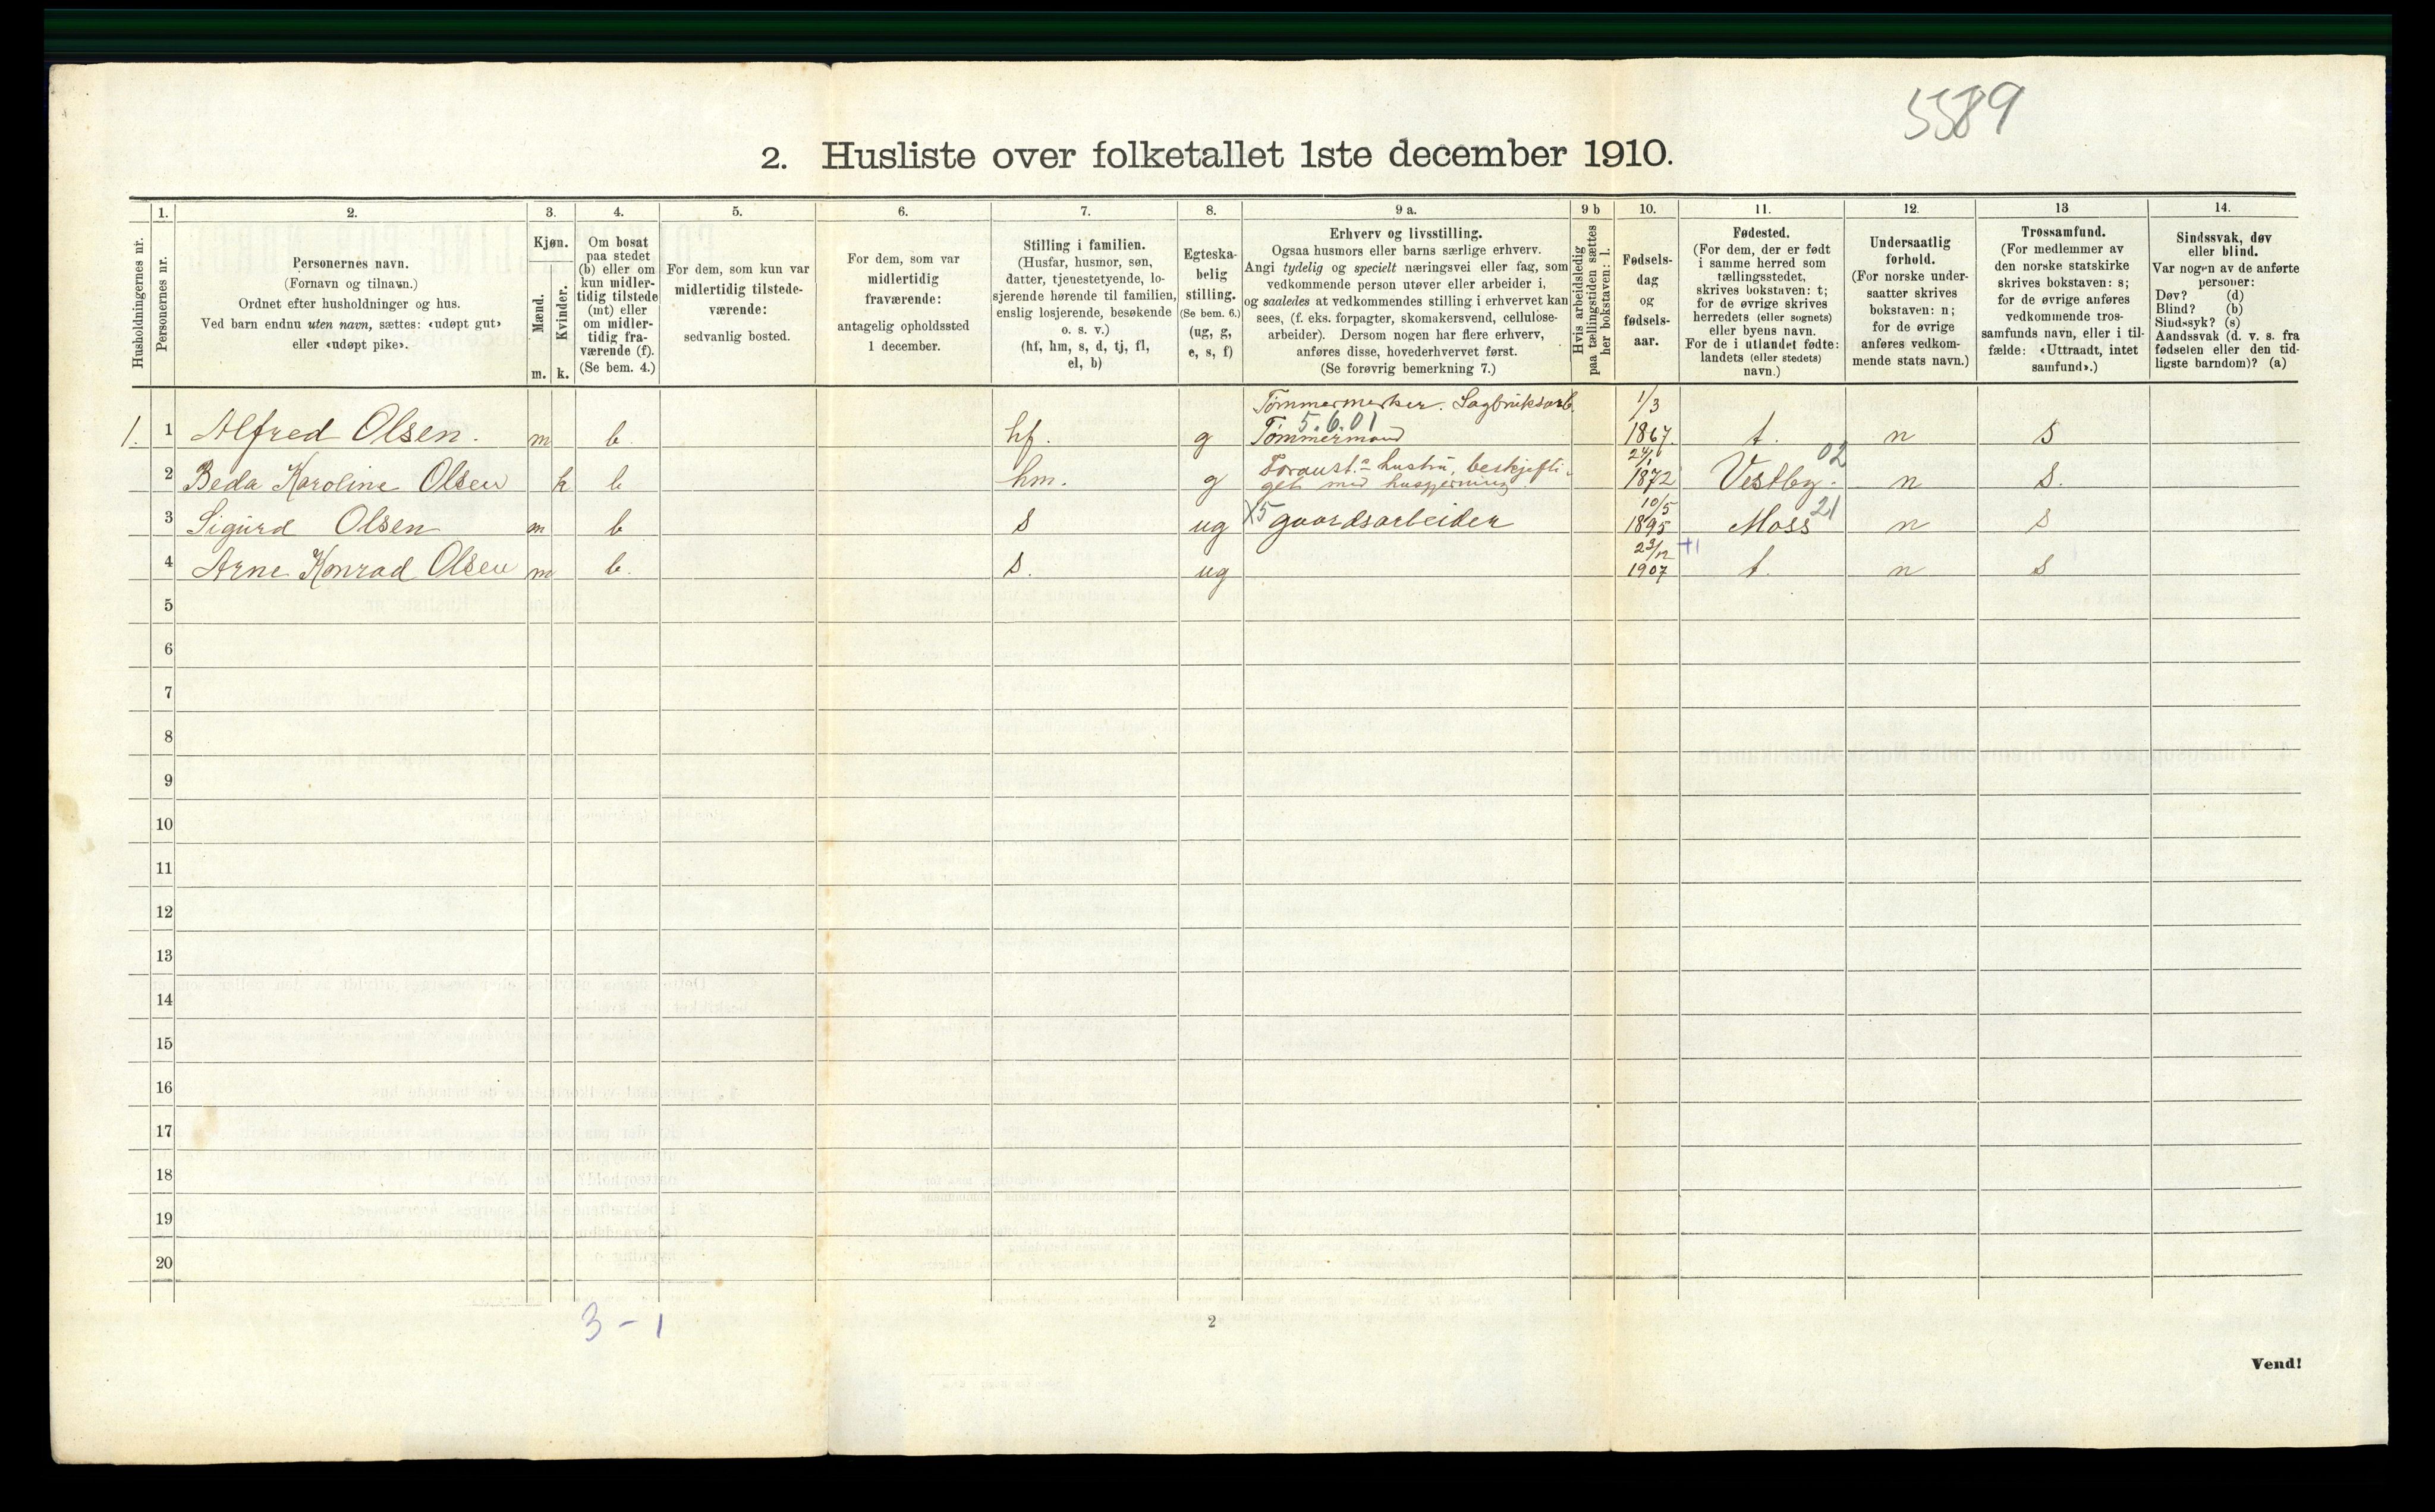 5589
2. Husliste over folketallet 1ste december 1910.
Husholdningernes nr.
1.
Personernes nr.
2.
Personernes navn.
(Fornavn og tilnavn.)
Ordnet efter husholdninger og hus.
Ved barn endnu uten navn, sættes: «udøpt gut»
eller «udøpt pike».
3.
Kjøn.
Mænd.
Kvinder.
m. k.
4.
Om bosat
paa stedet
(b) eller om
kun midler-
tidig tilstede
(mt) eller
om midler-
tidig fra-
værende (f).
(Se bem. 4.)
5.
For dem, som kun var
midlertidig tilstede-
værende:
sedvanlig bosted.
6.
For dem, som var
midlertidig
fraværende:
antagelig opholdssted
1 december.
7.
Stilling i familien.
(Husfar, husmor, søn,
datter, tjenestetyende, lo-
sjerende hørende til familien,
enslig losjerende, besøkende
o. s. v.)
(hf, hm, s, d, tj, fl,
el, b)
8.
Egteska-
belig
stilling.
(Se bem. 6.)
(ug, g,
e, s, f)
9 a.
Erhverv og livsstilling.
Ogsaa husmors eller barns særlige erhverv.
Angi tydelig og specielt næringsvei eller fag, som
vedkommende person utøver eller arbeider i,
og saaledes at vedkommendes stilling i erhvervet kan
sees, (f. eks. forpagter, skomakersvend, cellulose-
arbeider). Dersom nogen har flere erhverv,
anføres disse, hovederhvervet først.
(Se forøvrig bemerkning 7.)
9 b
Hvis arbeidsledig
paa tællingstiden sættes
her bokstaven: l.
10.
Fødsels-
dag
og
fødsels-
aar.
11.
Fødested.
(For dem, der er født
i samme herred som
tællingsstedet,
skrives bokstaven: t;
for de øvrige skrives
herredets (eller sognets)
eller byens navn.
For de i utlandet fødte:
landets (eller stedets)
navn.)
12.
Undersaatlig
forhold.
(For norske under-
saatter skrives
bokstaven: n;
for de øvrige
anføres vedkom-
mende stats navn.)
13
Trossamfund.
(For medlemmer av
den norske statskirke
skrives bokstaven: s;
for de øvrige anføres
vedkommende tros-
samfunds navn, eller i til-
fælde: «Uttraadt, intet
samfund».)
14.
Sindssvak, døv
eller blind.
Var nogen av de anførte
personer:
Døv? (d)
Blind? (b)
Sindssyk? (s)
Aandssvak (d. v. s. fra
fødselen eller den tid-
ligste barndom)? (a)
Tømmermerker. Sagbruksarb. 1/3
5.6.01
1. 1 Alfred Olsen. m b. hf. g Tømmermand 1867. t. n s
Foranst.s hustru, beskjefti- 24/1 02
2 Beda Karoline Olsen k b hm. g get med husgjerning. 1872 Vestby. n s.
10/5 21
3 Sigurd Olsen m b s ug X5 gaardsarbeider 1895 Moss n s
23/12 +1
4 Arne Konrad Olsen m b. s. ug 1907 t. n s
5
6
7
8
9
10
11
12
13
14
15
16
17
18
19
20
3 - 1
2
Vend!